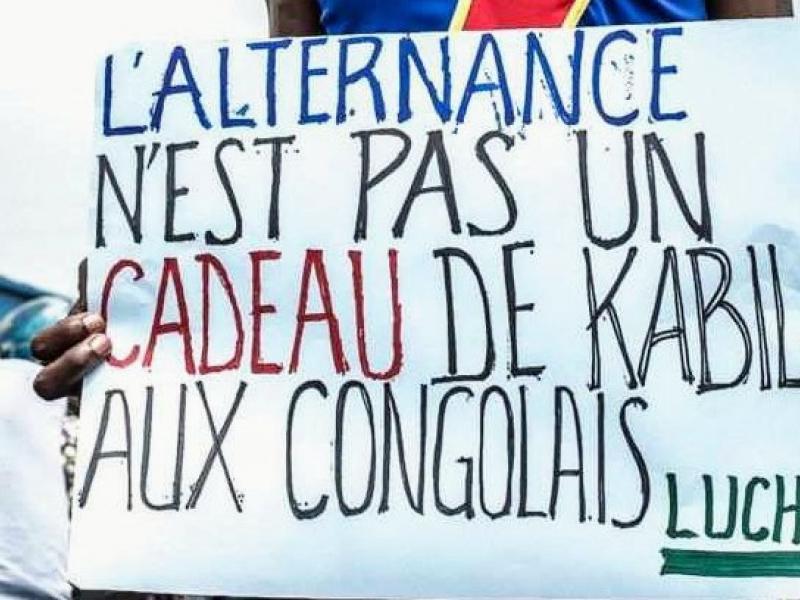 L'ALTERNANCE
N'EST PAS UN
CADEAU DE KABIL
AUX CONGOLAIS
LUCH